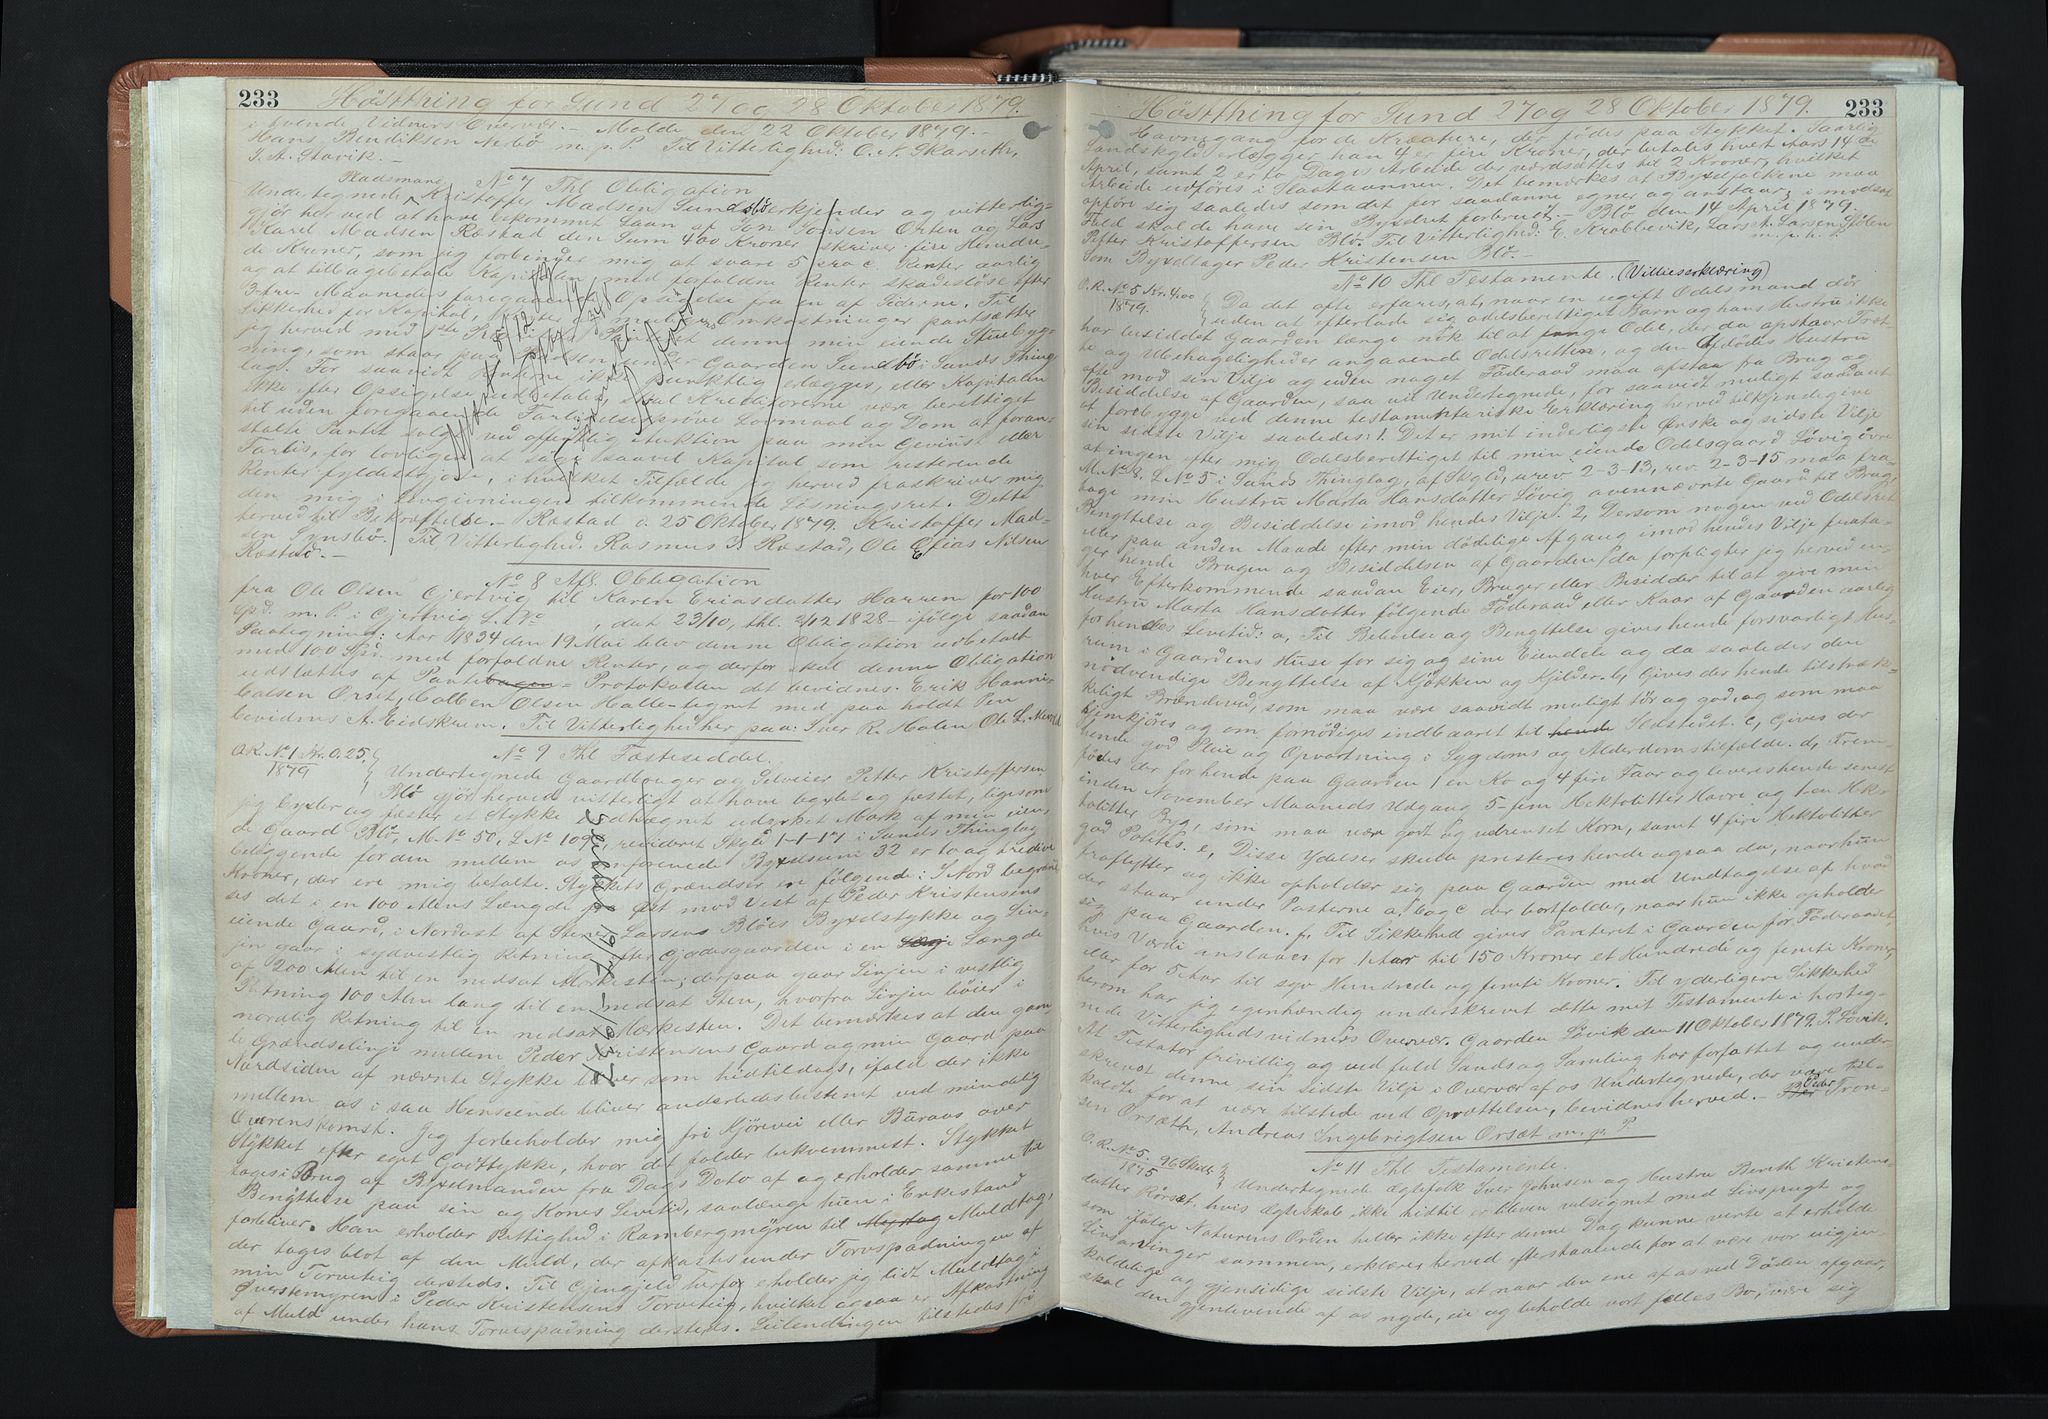 233 Høstthing for Sund 27 og 28 Oktober 1879.
i tvende Vidners Overvær. — Molde den 22 Oktober 1879. —
Hans Bendiksen Nerbø m. p. P. Til Vitterlighed: O. A. Skarseth,
S. A. Stavik. —
No 7 Thl Obligation
Pladsmand
Undertegnede Kristoffer Madsen Sundsbø erkjender og vitterlig-
gjør herved at have bekommet Laan af Jon Jonsen Orten og Lars
Karel Madsen Ræstad den Sum 400 Kroner skriver fire Hundre-
de Kroner, som jeg forbinder mig at svare 5 pro c. Renter aarlig
og at tilbagebetale Kapitalen med forfaldne Renter skadesløse efter
3 tre Maaneders foregaaende Opsigelse fra en af Siderne. Til
Sikkerhed for Kapital, Renter og mulige Omkostninger pantsætter
jeg herved med 1ste Prioritets Panteret denne min eiende Stuebyg-
ning, som staar paa Pladsen under Gaarden Sundsbø i Sunds Thing
lag. For saavidt Renterne ikke punktlig erlægges, eller Kapitalen
ikke efter Opsigelse indbetales, skal Kreditorerne være berettiget
til uden foregaaende Forligelsesprøve Lovmaal og Dom at foran-
stalte Pantet solgt ved offentlig Auktion paa min Gevinst eller
Forlis, for lovligen at søge saavel Kapital som resterende
Renter fyldestgjort, i hvilket Tilfælde jeg herved fraskriver mig
den mig i Lovgivningen tilkommende Løsningsret. Dette
herved til Bekræftelse. — Røstad d. 25 Oktober 1879. Kristoffer Mad-
sen Synsbø. Til Vitterlighed. Rasmus J. Ræstad, Ole Elias Nilsen
Ræstad. —
No 8 Afl. Obligation
fra Ole Olsen Gjertvig til Karen Eriasdatter Harrem for 100
Spd. m. P. i Gjertvig L. No , dat 23/10, thl. 2/12 1828 — ifølge saadan
Paategning: Aar 1834 den 19 Mai blev denne Obligation udbetalt
med 100 Spd. med forfaldne Renter, og derfor skal denne Obligation
udslættes af Pantebogen = Protokollen det bevidnes. Erik Hanni-
balsen Orset, Halben Olsen Halle tegnet med paa holdt Pen
bevidnes A. Eidskrem. Til Vitterlighed her paa: Iver R. Holen Ole L. Nerø
O.R. No 1 Kr. 0.25
1879
No 9 Thl Fæsteseddel.
Undertegnede Gaardbruger og Selveier Petter Kristoffersen
Blø gjør herved vitterligt at have bygslet og fæstet, ligesom
jeg bygsler og fæster et Stykke indhegnet udyrket Mark af min eien-
de Gaard Blø, M. No 50, L. No 109, revideret Skyld 1-1-17 i Sunds Thinglag
beliggende for den mellem os omforenede Bygselsum 32 er to og tredive
Kroner, der ere mig betalte. Stykkets Grændser er følgende: I Nord begrænd-
ses det i en 100 Alens Længde fra Øst mod Vest af Peder Kristensens
eiende Gaard, i Nordost af Stener Larsens Bløes Bygselstykke og Lin-
jen gaar i sydvestlig Retning efter Gjædsgaarden i en Længde
af 200 Alen til en nedsat Mærkesten; derpaa gaar Linjen i vestlig
Retning 100 Alen lang til en nedsat Sten, hvorfra Linjen bøier i
nordlig Retning til en nedsat Mærkesten. Det bemærkes at den gam
le Grændselinje mellem Peder Kristensens Gaard og min Gaard paa
Nordsiden af nævnte Stykke bliver som hidtildags, ifald der ikke
mellem os i saa Henseende bliver anderledes bestemt ved mindelig
Overenskomst. Jeg forbeholder mig fri Kjørevei eller Buraas over
Stykket efter eget Godtykke, hvor det falder bekvemmest. Stykket
tages i Brug af Bygselmanden fra Dags Dato af og erholder samme til
Benyttelse paa sin og Kones Levetid, saalænge hun i Enkestand
forbliver. Han erholder Rettighed i Rambergmyren til Muldtag,
der tages blot af den Muld, der afkastes under Torvspadningen af
min Torvteig dersteds. Til Gjengjeld herfor eholder jeg lidt Muldtag i
Øverstemyren i Peder Kristensens Torvteig, hvilket ogsaa er Afkastning
af Muld under hans Torvespadning dersteds. Leilendingen tilstedes fri
Slettet 19/5-1931
Høstthing for Sund 27 og 28 Oktober 1879. 233
Havnegang for de Kreature, der fødes paa Stykket. I aarlig
Landskyld erlægger han 4 er fire Kroner, der betales hvert Aars 14de
April, samt 2 er to Dages Arbeide der værdsættes til 2 Kroner, hvilket
Arbeide udføres i Slaataannen. Det bemærkes at Bygselfolkene maa
opføre sig saaledes som det for saadanne egner og anstaar; i modsat
Fald skal de have sin Bygselret forbrudt. — Blø den 14 April 1879.
Petter Kristoffersen Blø. Til Vitterlighed: E. Krabbevik, Lars A. Larsen Sjølen
m. p. h. P.
Som Bygseltager Peder Kristensen Blø. —
No 10 Thl Testamente. (Villieserklæring)
O.R. No 5 Kr. 4.00
1879.
Da det ofte erfares, at, naar en ugift Odelsmand dør
uden at efterlade sig odelsberettiget Barn og hans Hustru ikke
har besiddet Gaarden længe nok til at Odel, der da opstaar Træt-
te og Ubehageligheder angaaende Odelsretten, og den Afdødes Hustru
ofte mod sin Vilje og uden noget Føderaad maa afstaa fra Brug og
Besiddelse af Gaarden, saa vil Undertegnede, for saavidt muligt saadant
at forebygge ved denne testamentariske Erklæring herved tilkjendegive
sin sidste Vilje saaledes: 1. Det er mit inderligste Ønske og sidste Vilje
at ingen efter mig Odelsberettiget til min eiende Odelsgaard Løvig øvre
M. No 2, L No 5 i Sunds Thinglag, af Skyld, urev 2-3-13, rev. 2-3-15 maa fra-
tage min Hustru Marta Hansdatter Løvig ovennævnte Gaard til Brug,
Benyttelse og Besiddelse imod hendes Vilje. 2, Dersom nogen ved Odelsret
eller paa anden Maade efter min dødelige Afgang imod hendes Vilje frata-
ger hende Brugen og Besiddelsen af Gaarden, da forpligter jeg herved en-
hver Efterkommende saadan Eier, Bruger eller Besidder til at give min
Hustru Marta Hansdatter følgende Føderaad eller Kaar af Gaarden aarlig
for hendes Levetid: a, Til Beboelse og Benyttelse gives hende forsvarligt Hus-
rum i Gaardens Huse for sig og sine Eiendele og da saaledes den
nødvendige Benyttelse af Kjøkken og Kjelder. b, Gives der hende tilstræk-
keligt Brændeved, som maa være saavidt muligt tør og god, og som maa
hjemkjøres og om fornødiges indbæret til hende Ildstedet. c, Gives der
hende god Pleie og Opvartning i Sygdoms og Alderdomstilfælde. d, Frem-
fødes der for hende paa Gaarden 1 en Ko og 4 firi Faar og leveres hende senest
inden November Maaneds Udgang 5 - fem Hektolitter Havre og 1 en Hek-
tolitter Byg, som maa være godt og vel renset Korn, samt 4 firi Hektolitter
god Potetes. e, Disse Ydelser skulle presteres hende ogsaa da, naar hun
fraflytter og ikke opholder sig paa Gaarden med Undtagelse af hvad
der staar under Posterne a, b og c der bortfalder, naar hun ikke opholder
sig paa Gaarden. f, Til Sikkerhed gives Panteret i Gaarden for Føderaadet,
hvis Værdi anslaaes for 1 Aar til 150 Kroner et Hundrede og femti Kroner,
eller for 5 Aar til syv Hundrede og femti Kroner. Til yderligere Sikkerhed
herom har jeg egenhændig underskrevet dette mit Testamente i hosteg-
nede Vitterlighedsvidners Overvær. Gaarden Løvik den 11 Oktober 1879. P. Løvik.
At Testator frivillig og ved fuld Sands og Samling har forfattet og under-
skrevet denne sin sidste Vilje i Overvær af os Undertegnede, der vare til-
kaldte for at være tilstede ved Oprettelsen, bevidnes herved. — Peder Tron-
sen Orsæth, Andreas Ingebrigtsen Orsæt m. p. P.
O.R. No 5. 96 Skill.
1875
No 11 Thl Testamente.
Undertegnede Ægtefolk Iver Johnsen og Hustru Bereth Kristens-
datter Rørsæt, hvis Ægteskab ikke hidtil er bleven velsignet med Livsfrugt og
som ifølge Naturens Orden heller ikke efter denne Dag kunne vente at erholde
Livsarvinger sammen, erklæres herved efterstaaende for at være vor uigjen-
kaldelige og gjensidige sidste Vilje, at naar den ene af os ved Døden afgaar,
skal den gjenlevende af os nyde, eie og beholde vort fælles Bo, være sig